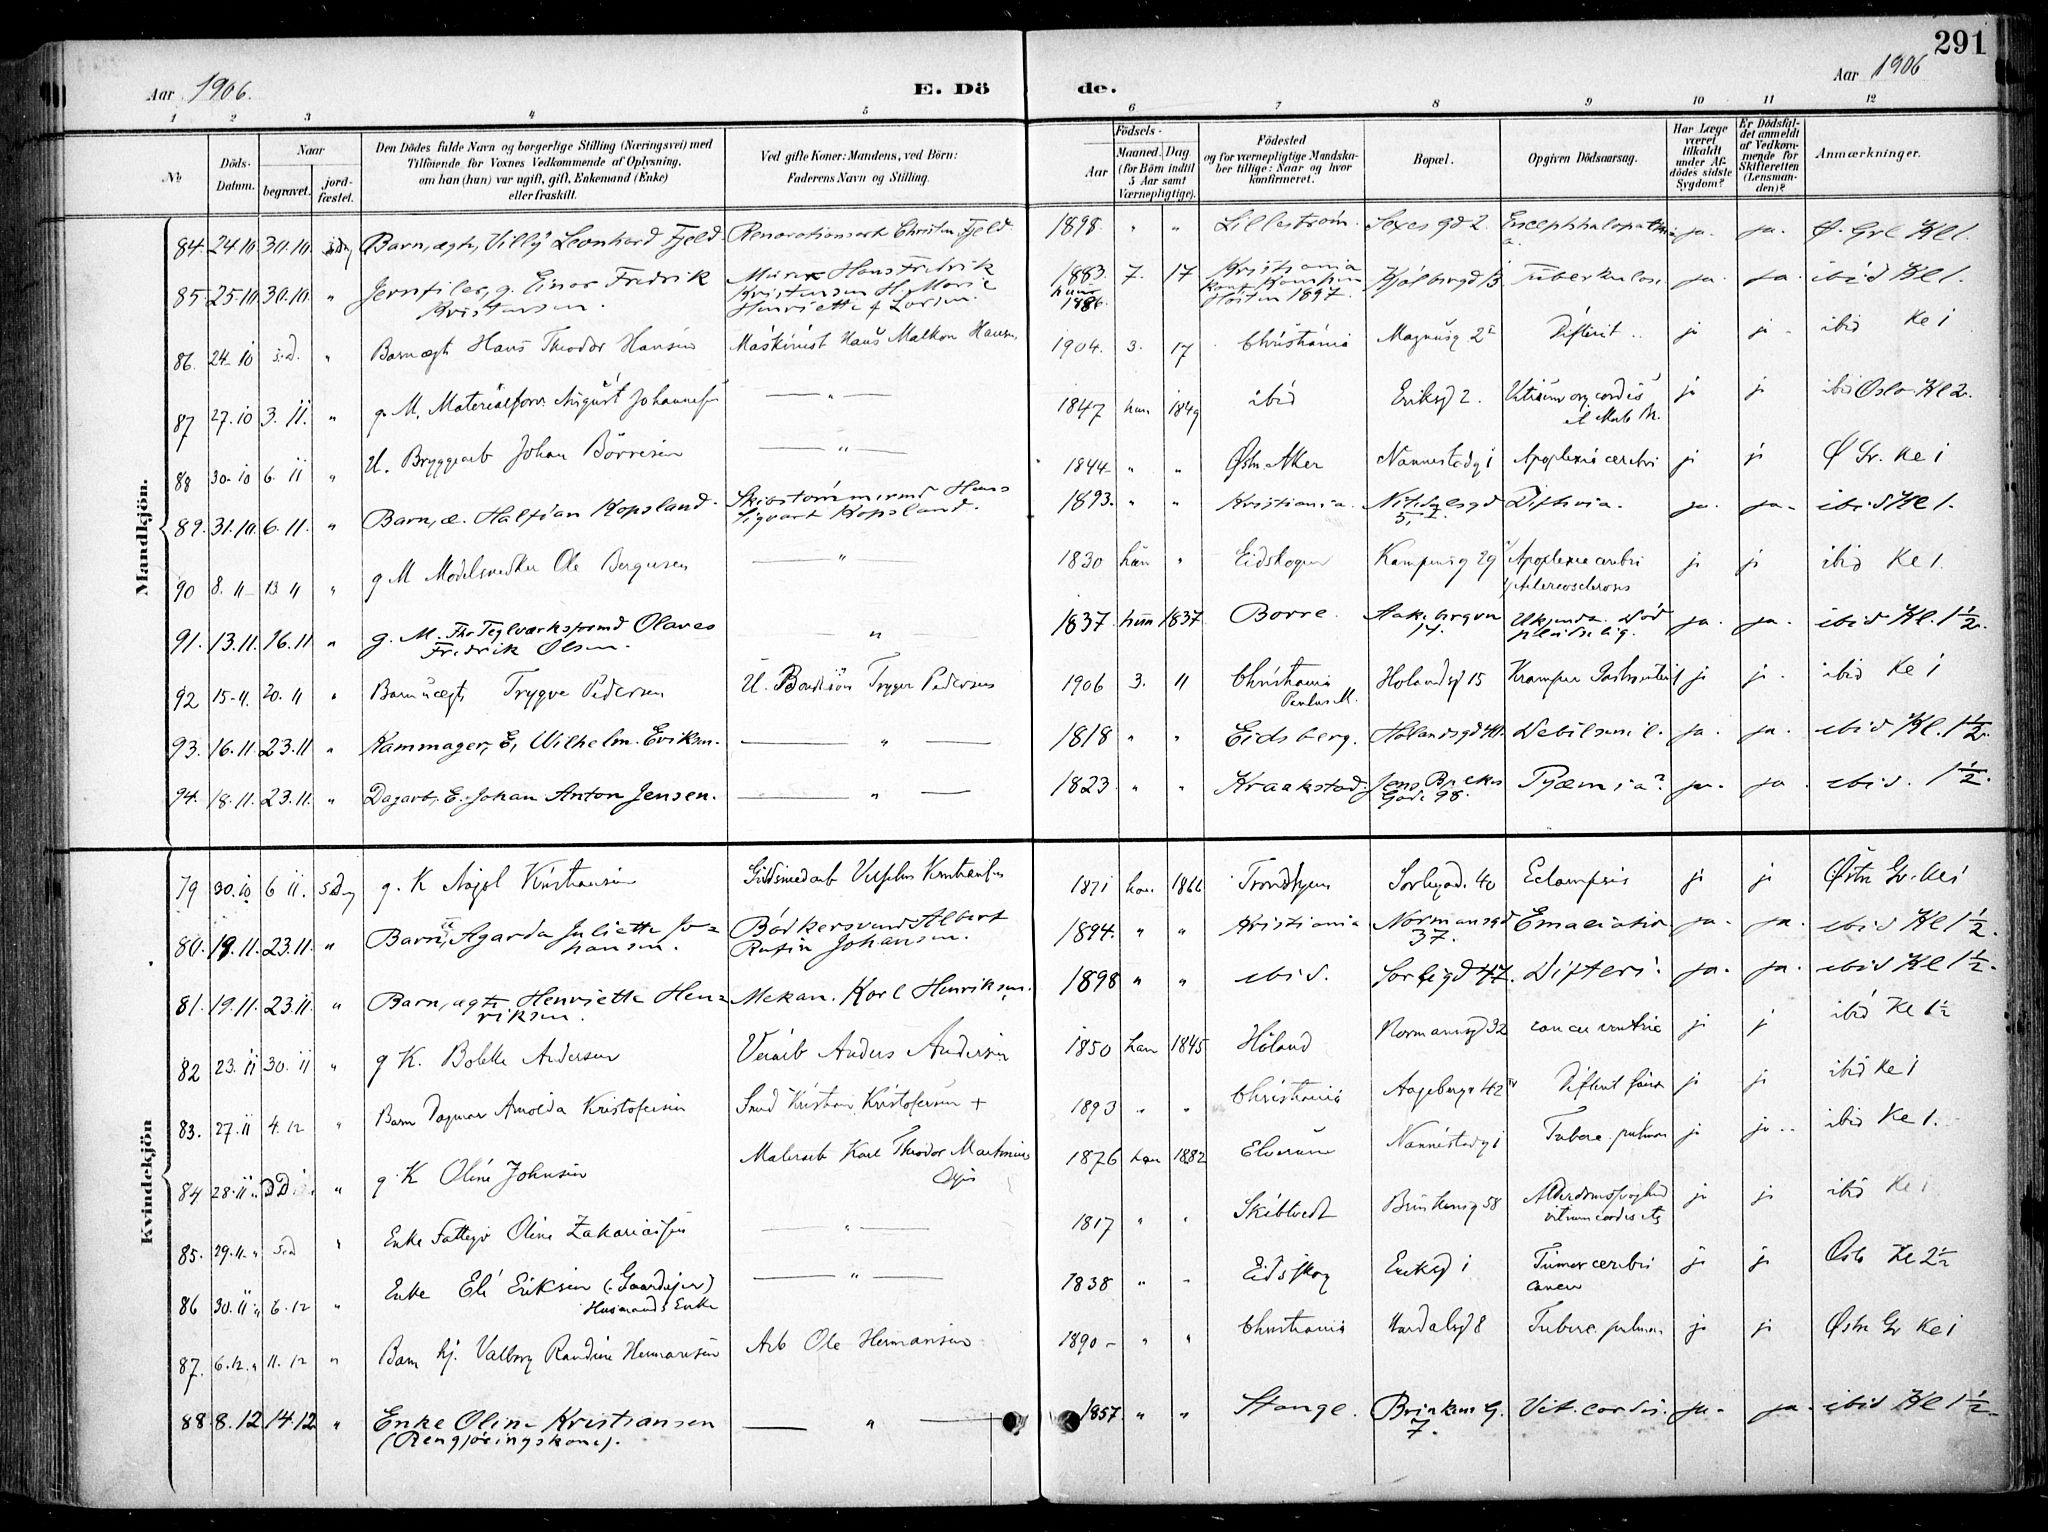 291
Aar 1906.
E. Dö
de.
Aar 1906
1 2 3 4 5 6 7 8 9 10 11 12
No
Döds-Datum.
Naar
begravet.
jord-fæstet.
Den Dödes fulde Navn og borgerlige Stilling (Næringsvei) med
Tilföiende for Voxnes Vedkommende af Oplysning,
om han (hun) var ugift, gift, Enkemand (Enke)
eller fraskilt.
Ved gifte Koner: Mandens, ved Börn:
Faderens Navn og Stilling.
Födsels-
Aar
Maaned. Dag
(for Börn indtil
5 Aar samt
Værnepligtige).
Födested
og for værnepligtige Mandska-
ber tillige: Naar og hvor
konfirmeret.
Bopæl.
Opgiven Dödsaarsag.
Har Læge
været
tilkaldt
under Af-
dødes sidste
Sygdom?
Er Dödsfal-
det anmeldt
af Vedkom-
mende for
Skifteretten
(Lensman-
den)?
Anmærkninger.
Mandkjön.
84. 24.10 30.10. Barn, ægte, Villy Leonhard Fjeld. Christian Fjeld. 1898. " " Lilleström. gd 2. ja. ja. Ø. Grl Kl 1.
85. 25.10 30.10. " Jernfiler, g. Einar Fredrik Kristensen. Murer Hans Fredrik Kristensen H. Marie Henriette f. Larsen. 1883. 7. 17 Kristiania Konf. Kampen Høsten 1897. Kjølberggd 13 Tuberkulose ja. ja. ibid Kl 1.
86. 24.10 s.d. " Barn ægte Hans Theodor Hansen Maskinist Hans Malkon Hansen 1904. 3. 17 Christiania Magnusg 2 Difterit ja ja ibid Kl 1
87 27.10 3. 11. " g. M. Materialforv. August Johannesen — " — 1847 hun 1849 ibid Eriksgd 2. Vitium org cordis ja ja ibid Oslo Kl 2.
88 30.10 6. 11 " U. Bryggearb Johan Börresen — " — 1844 " " Østre Aker Nannestadg 1 Apoplexia cerebri ja ja Ø Gr. Kl 1
89. 31.10. 6.11. " Barn, æ. Halfdan Kopsland. Skibstømmermd Hans Sigvart Kopsland. 1893. " " Kristiania. gd 5, I Difteria. ja. ja. ibid Kl 1.
90 8. 11 13 11 " g M Modelsnedker Ole Bergersen — " — 1830 hun " Eidskogen Kampensg 29 Apoplexia cerebri Aterioschlerosis ja ja ibid Kl 1.
91. 13.11. 16.11 " g. M. Fhv Teglværksformd Olaves Fredrik Olsen. " 1837. hun 1837. Borre. Aakebergvn 17. Ukjendt. Død pludselig. ja. ja. ibid Kl. 1 1/2.
92 15.11. 20.11 " Barn uægte Trygve Pedersen U. Trygve Pedersen 1906 3. 11 Christiania Paulus M. Holandsgd 15 Kramper ja ja. ibid Kl 1
93. 16.11. 23.11 " Kammager, E, Wilhelm Eriksen. — " — 1818 " " Eidsberg. Hølandsgd ja. ja. ibid Kl. 1 1/2.
94. 18.11. 23.11. " Dagarb, E. Johan Anton Jensen. — " — 1823 " " Kraakstad. Jens Bjelkes Gade 98. Pyæmia? ja. ja. ibid. 1 1/2.
Kvindekjön
79 30.10 6 11. g. K Kristiansen 1871 han 1866 Trondhjem Sorligd. 40 Eclampsis ja ja Østre Gr. Kl 1
80. 19.11. 23.11. " Barn, u Agarda Juliette Johansen. Bødkersvend Albert Rufin Johansen. 1894. " " Kristiania Normansgd 37. Emaciatio ja. ja. ibid Kl 1 1/2.
81. 19.11. 23.11 " Barn, ægte Henriette Henriksen. Mekan. Karl Henriksen. 1898 " " ibid. Sorligd 47. Difteri. ja. ja. ibid Kl 1 1/2.
82 23.11 30.11 " g K. Bolette Andersen Anders Andersen 1850 han 1845 Höland Normannsgd 32 cancer ventric ja ja ibid Kl 1 1/2
83. 27.11 4.12 " Barn Dagmar Arnolda Kristofersen Smed Kristian Kristofersen + 1893 " " Christiania Aagebergv 42 Difterit ja ja ibid Kl 1
84 28.11 " g. K Oline Johnsen Malerarb Karl Theodor Martinius 1876 han 1882 Elverum Nannestadg 1 Tuberc. pulmon ja ja ibid Kl 1.
85. 29.11. s.d " Enke Fattige Oline Zakariassen — " — 1817 " " Skibtvedt Brinkensg 58 Alderdomssvaghed vitium cordis ja ja ibid Kl 1
86 30.11 6.12 " Enke Eli Eriksen (: Gaardeier) Husmands Enke — " — 1838 " " Eidsskog Eriksgd 1 Tumor cerebri cancer ja ja Oslo Kl 2 1/2
87. 6.12. 11.12 " Barn hj. Valborg Randine Hermansen Arb Ole Hermansen 1890 " " Christiania Hardalsgd 8 Tuberc. pulmon ja ja Østre Gr Kl 1
88. 8.12 14.12 " Enke Oline Kristiansen (Rengjøringskone). — " — 1857. " " Stange. Brinkens G. 7. Vit. cordis. ja. ja. ibid Kl 1 1/2.